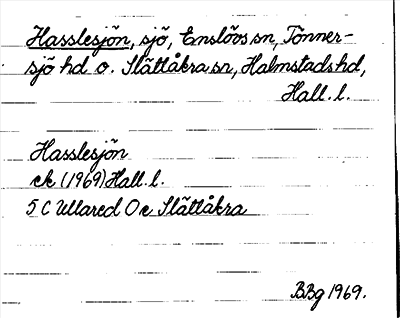 Hasslesjön, sjö, Enslövs sn, Tönner-
sjö hd o. Slättåkra sn, Halmstads hd,
Hall. l.
Hasslesjön
ek (1969) Hall. l.
5 C Ullared O e Slättåkra
BBg 1969.